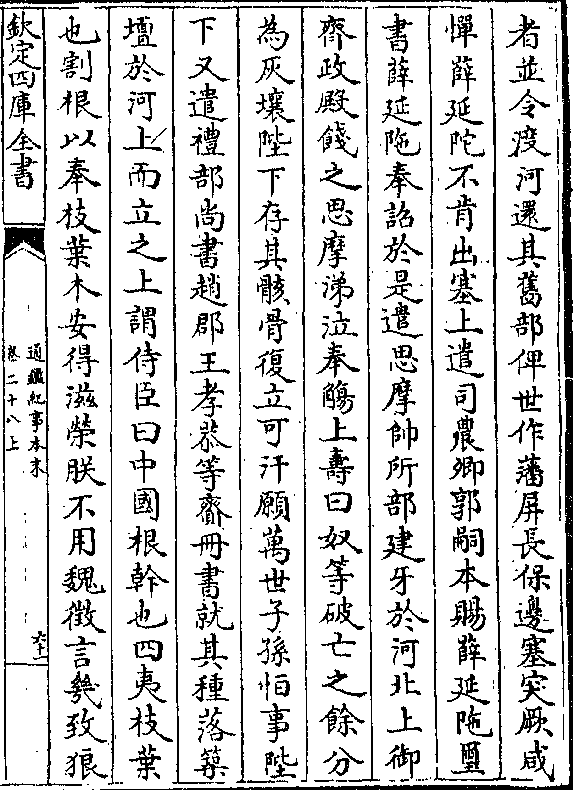 者並令渡河還其舊部俾世作藩屏長保邊塞突厥咸
憚薛延陀不肯出塞上遣司農卿郭嗣本賜薛延陁璽
書薛延陁奉詔於是遣思摩帥所部建牙於河北上御
齊政殿餞之思摩涕泣奉觴上壽曰奴等破亡之餘分
為灰壤陛下存其骸骨復立可汗願萬世子孫怕事陛
下又遣禮部尚書趙郡王孝恭等齎冊書就其種落築
壇於河上而立之上謂侍臣曰中國根幹也四夷枝葉
也割根以奉枝葉木安得滋榮朕不用魏徵言幾致狼
欽定四庫全書
通鑑紀事本末
卷二十八上
六十一